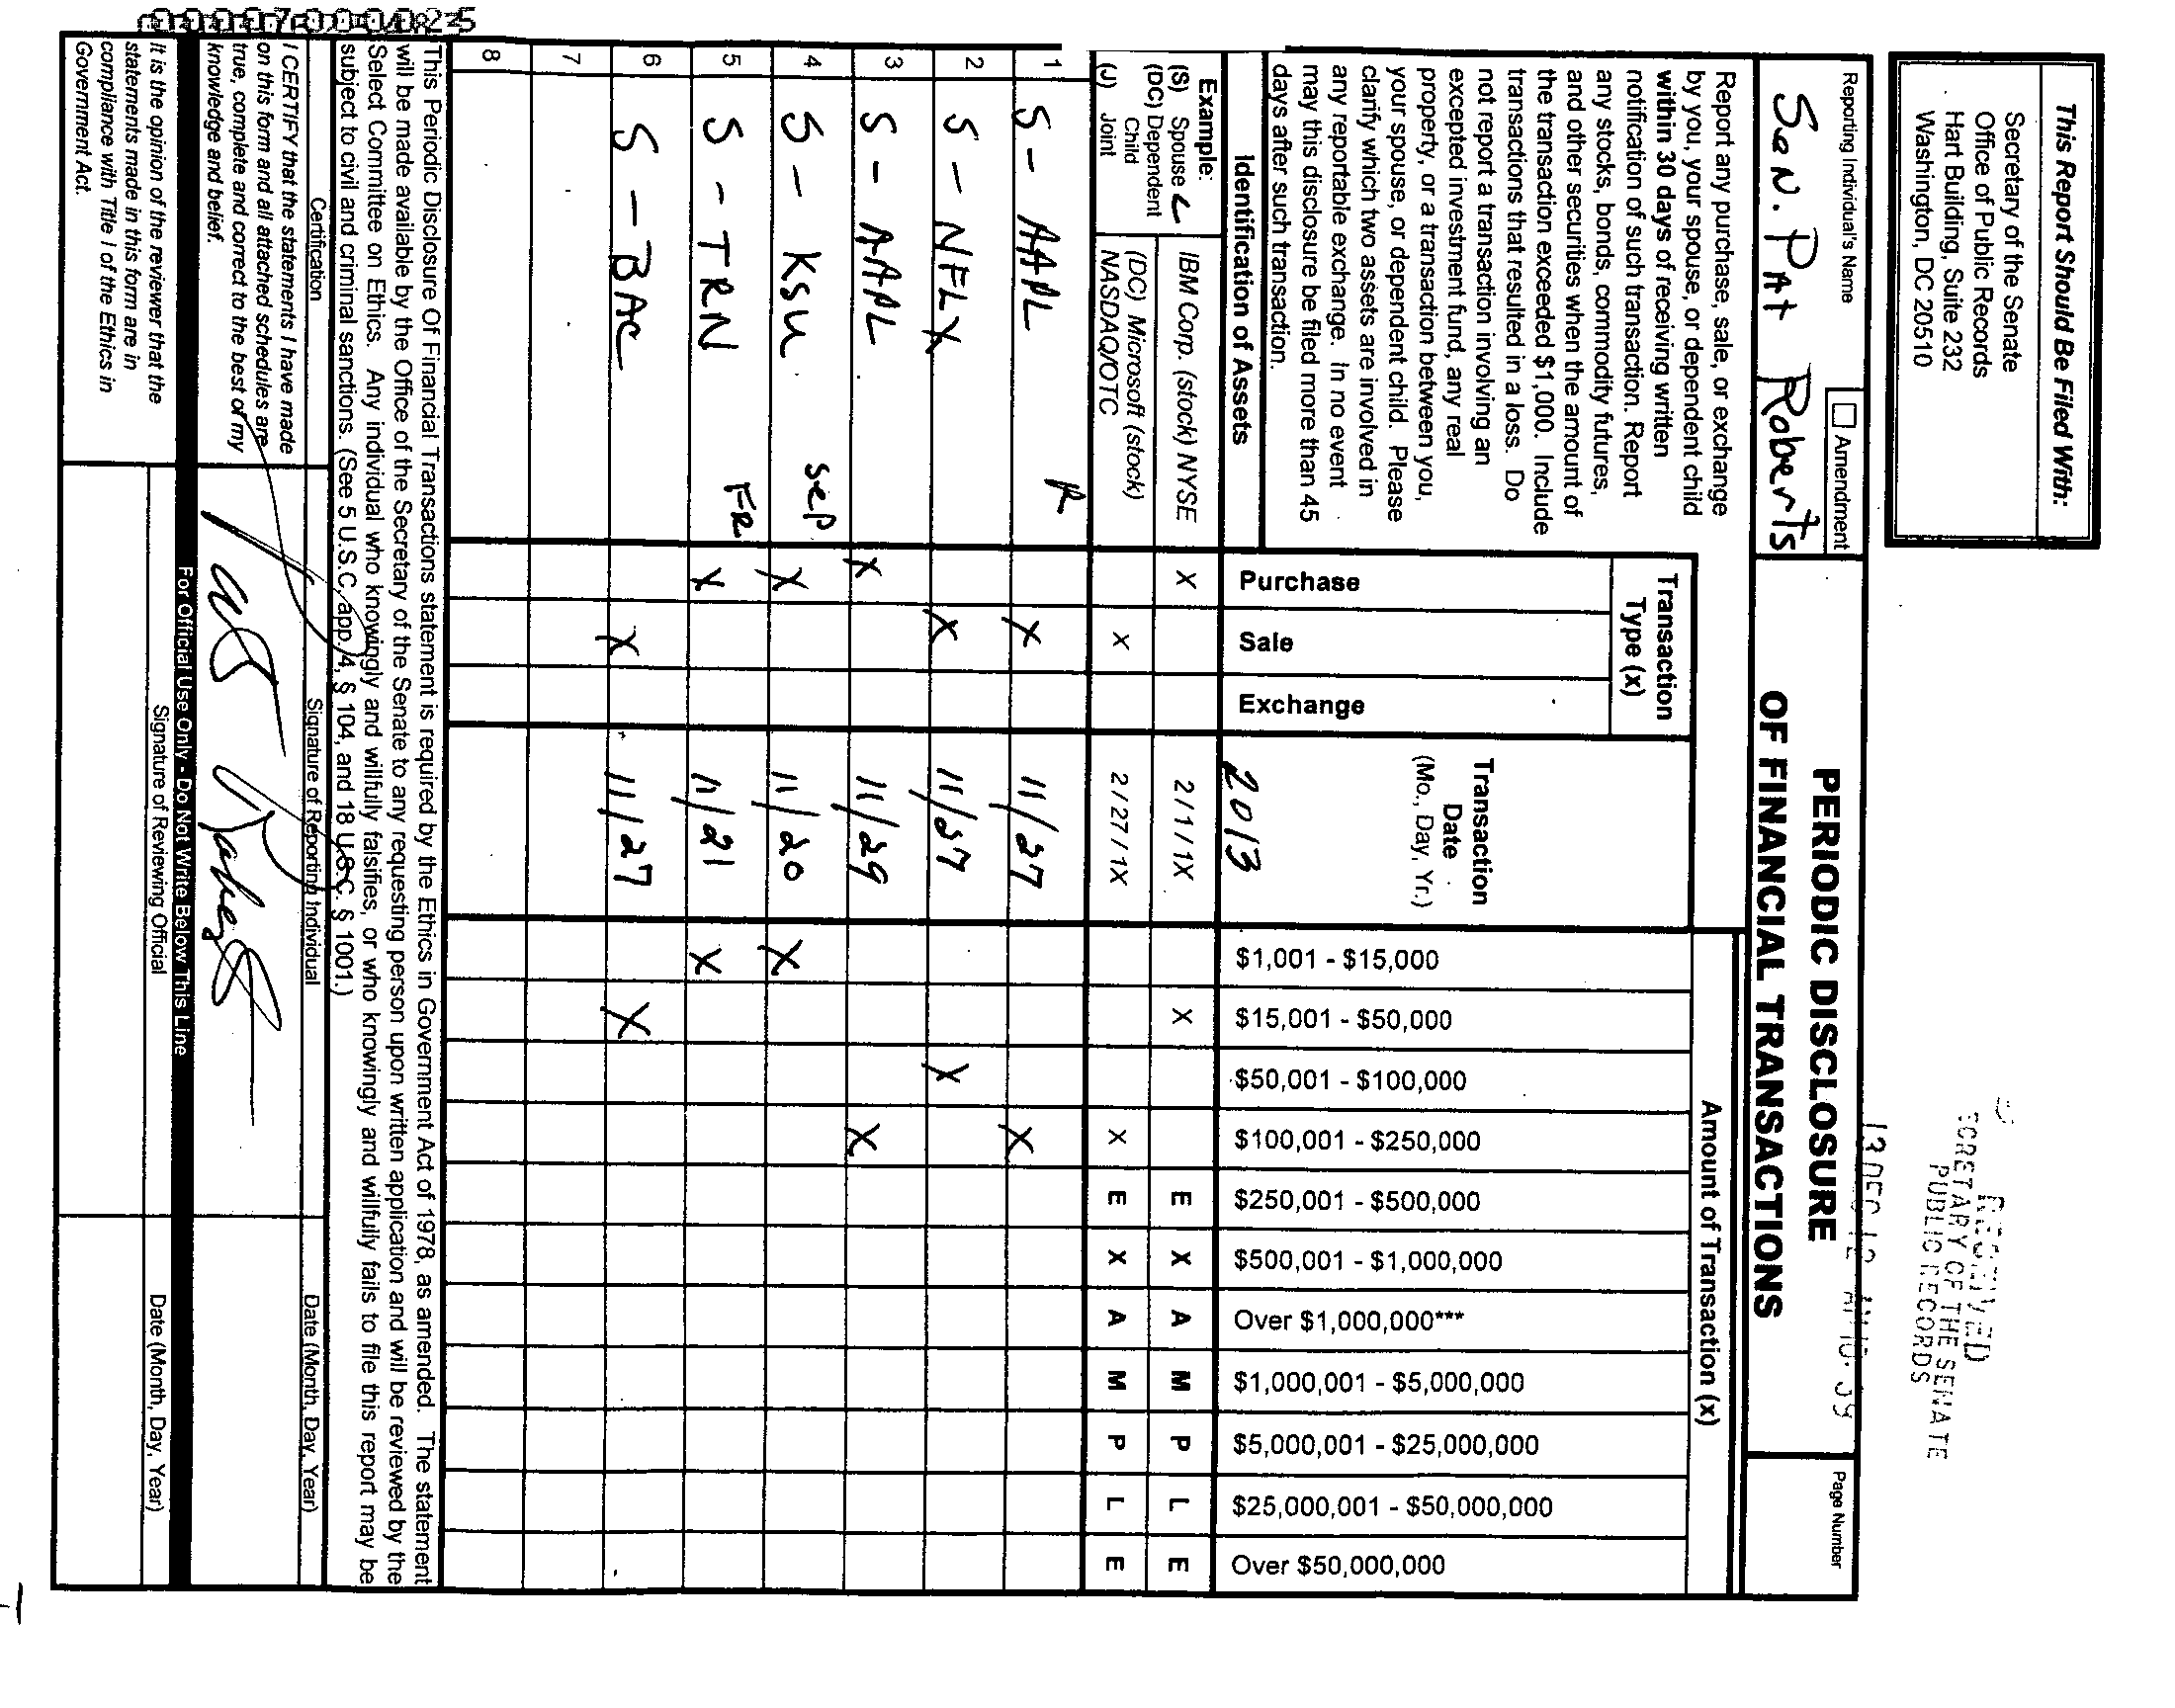 This Report Should Be Filed With:
Secretary of the Senate
Office of Public Records
Hart Building, Suite 232
Washington, DC 20510
RECEIVED
SECRETARY OF THE SENATE
PUBLIC RECORDS
Reporting Individual's Name
Amendment
Sen. Pat Roberts
PERIODIC DISCLOSURE
OF FINANCIAL TRANSACTIONS
Page Number
Report any purchase, sale, or exchange
by you, your spouse, or dependent child
within 30 days of receiving written
notification of such transaction. Report
any stocks, bonds, commodity futures,
and other securities when the amount of
the transaction exceeded $1,000. Include
transactions that resulted in a loss. Do
not report a transaction involving an
excepted investment fund, any real
property, or a transaction between you,
your spouse, or dependent child. Please
clarify which two assets are involved in
any reportable exchange. In no event
may this disclosure be filed more than 45
days after such transaction.
Identification of Assets
Transaction
Type (x)
Purchase
Sale
Exchange
Transaction
Date
(Mo., Day, Yr.)
2013
Amount of Transaction (x)
$1,001 - $15,000
$15,001 - $50,000
$50,001 - $100,000
$100,001 - $250,000
$250,001 - $500,000
$500,001 - $1,000,000
Over $1,000,000***
$1,000,001 - $5,000,000
$5,000,001 - $25,000,000
$25,000,001 - $50,000,000
Over $50,000,000
Example:
(S) Spouse
(DC) Dependent
Child
(J) Joint
IBM Corp. (stock) NYSE X 2/1/1X X E X A M P L E
(DC) Microsoft (stock)
NASDAQ/OTC X 2/27/1X X E X A M P L E
1 S - AAPL X 11/27 X
2 S - NFLX X 11/27 X
3 S - AAPL X 11/29 X
4 S - KSU SEP X 11/20 X
5 S - TRN FR X 11/21 X
6 S - BAC X 11/27 X
7
8
This Periodic Disclosure Of Financial Transactions statement is required by the Ethics in Government Act of 1978, as amended. The statement
will be made available by the Office of the Secretary of the Senate to any requesting person upon written application and will be reviewed by the
Select Committee on Ethics. Any individual who knowingly and willfully falsifies, or who knowingly and willfully fails to file this report may be
subject to civil and criminal sanctions. (See 5 U.S.C. app. 4, § 104, and 18 U.S.C. § 1001.)
Certification
Signature of Reporting Individual
Date (Month, Day, Year)
I CERTIFY that the statements I have made
on this form and all attached schedules are
true, complete and correct to the best of my
knowledge and belief.
For Official Use Only - Do Not Write Below This Line
It is the opinion of the reviewer that the
statements made in this form are in
compliance with Title I of the Ethics in
Government Act.
Signature of Reviewing Official
Date (Month, Day, Year)